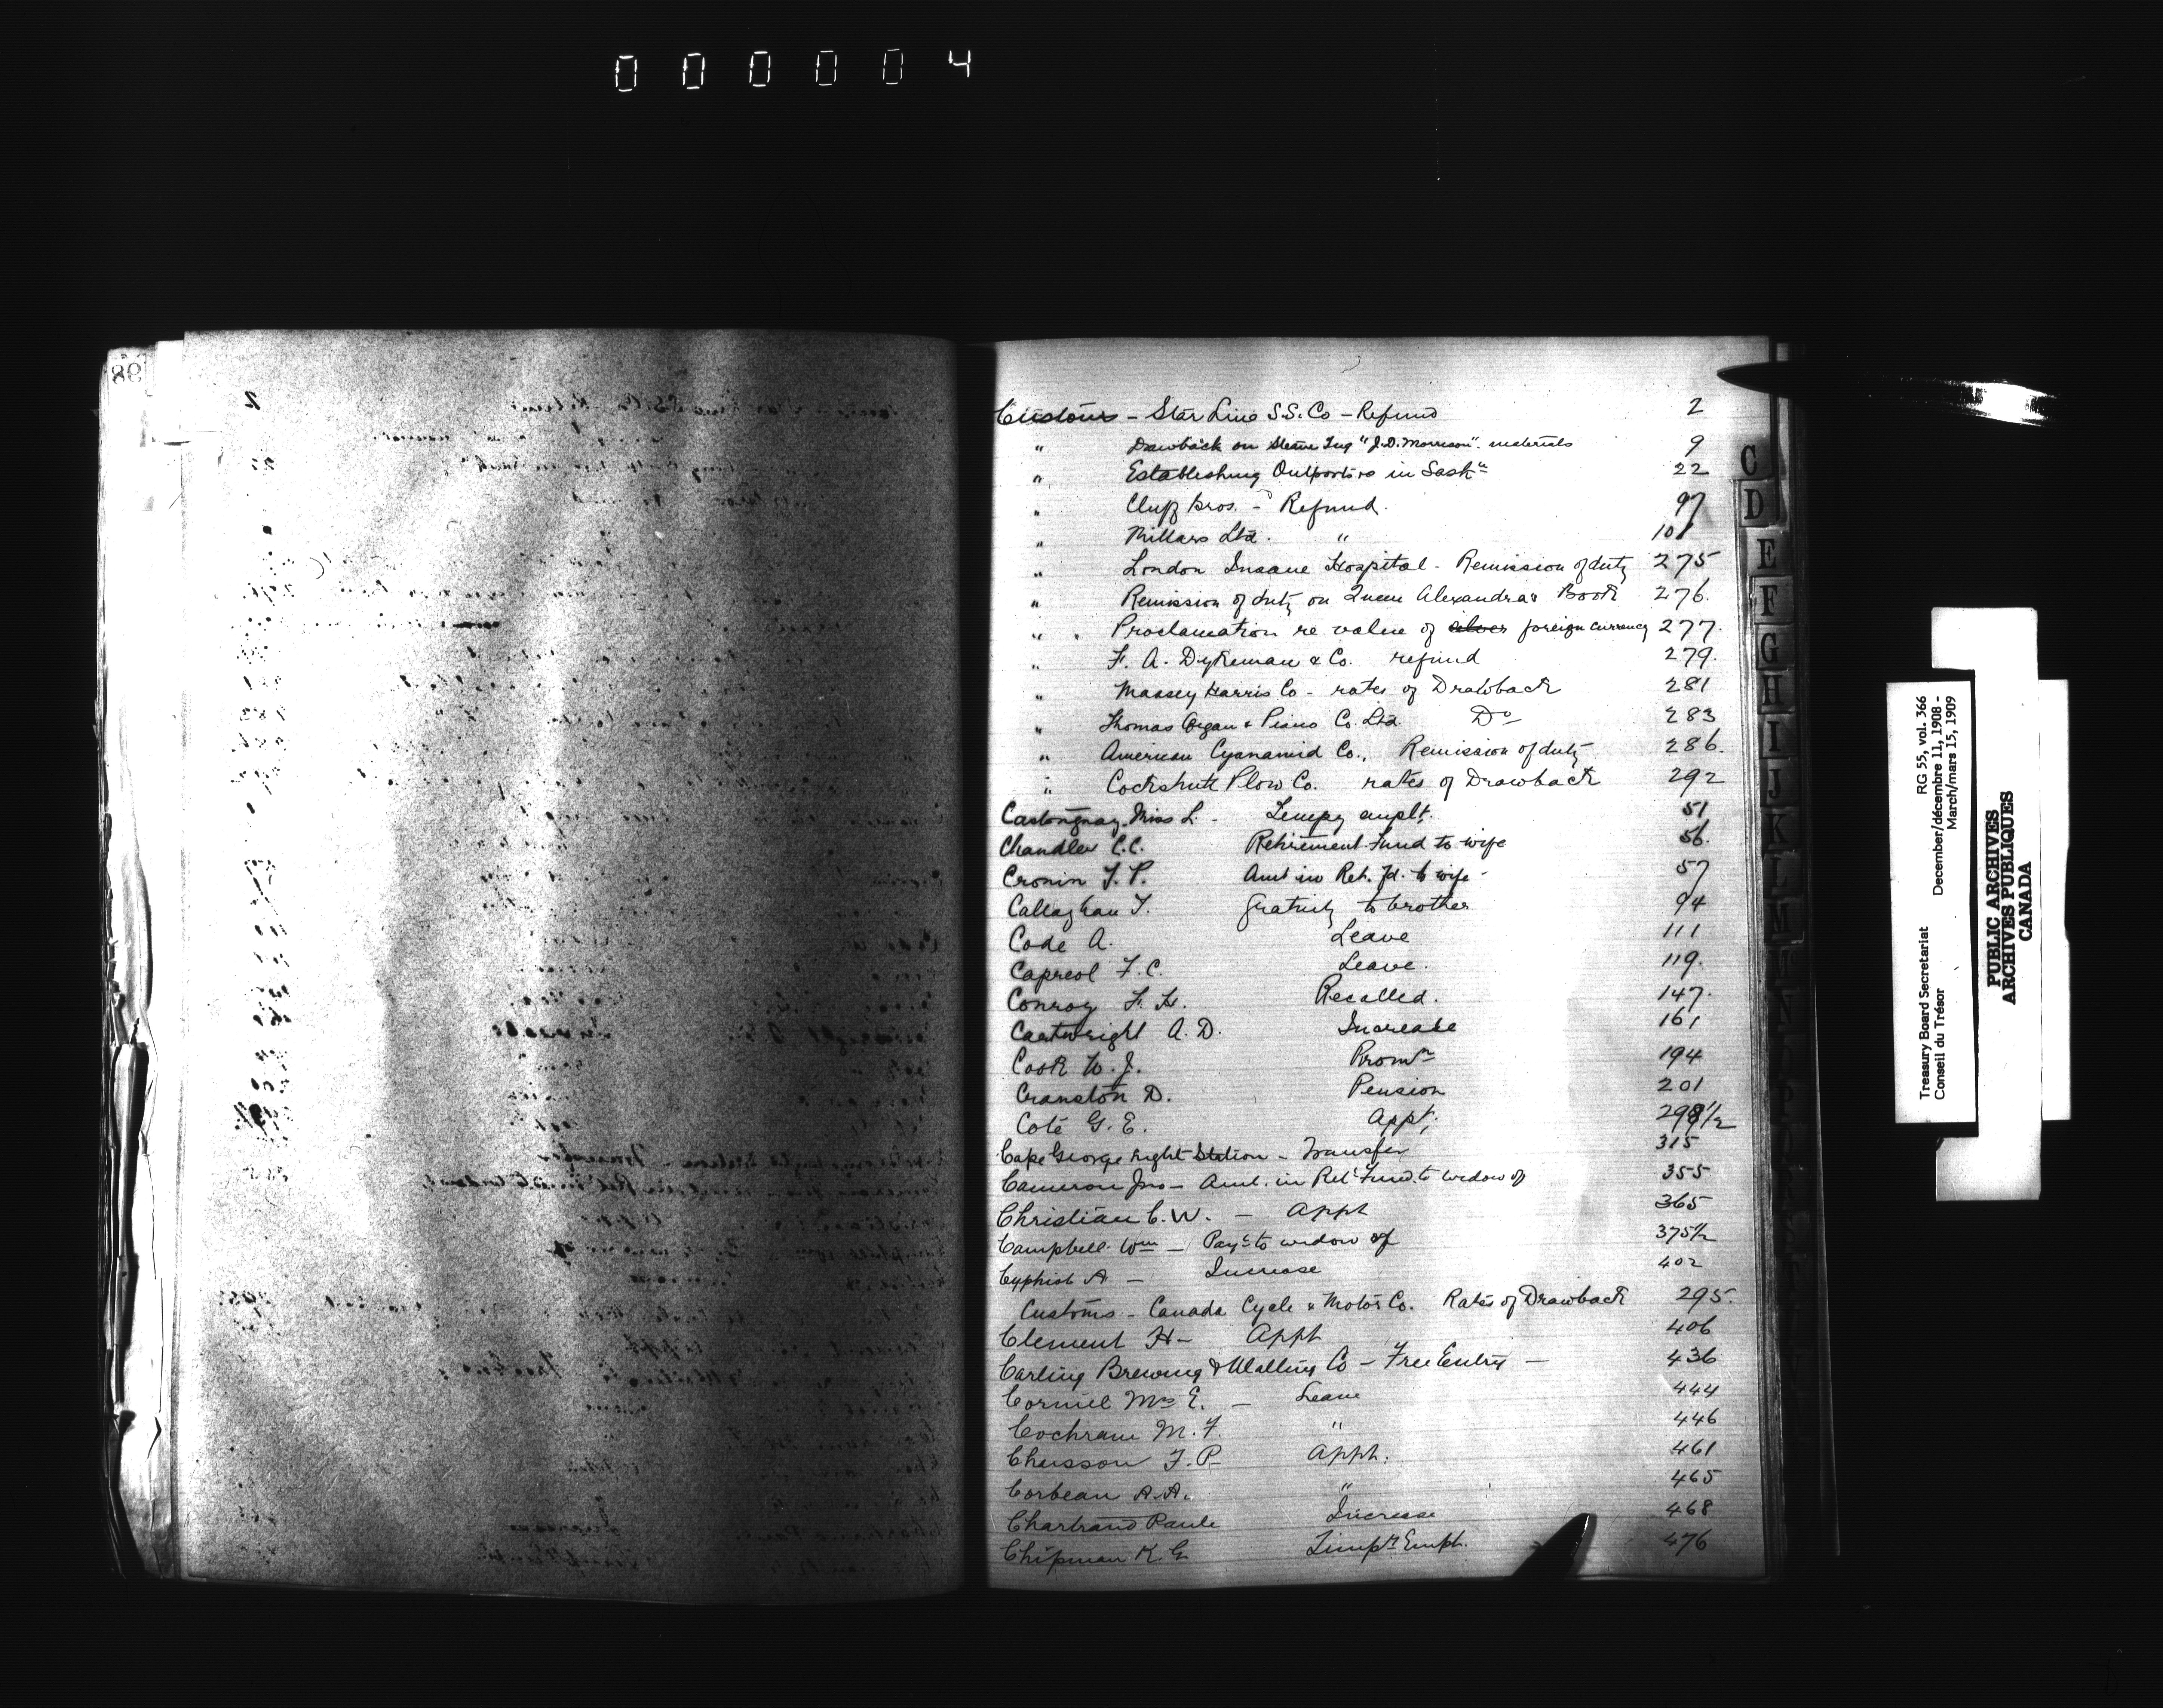 000004
86
Customs - Star Line S.S. Co - Refund 2
" Drawback on Steam Tug "J.D. Morrison" materials 9
" Establishing Outports in Saskn 22
" Cluff Bros. - Refund. 97
" Millars Ltd. " 101
" London Insane Hospital - Remission of duty 275
" Remission of duty on Queen Alexandra's Book 276.
" Proclamation re value of silver foreign currency 277.
" F. A. Dykeman & Co. refund 279.
" Massey Harris Co - rates of Drawback 281
" Thomas Organ & Piano Co. Ltd. Do 283
" American Cyanamid Co., Remission of duty 286.
" Cockshutt Plow Co. rates of Drawback 292
Castonguay Miss L. - Tempy emplt. 51
Chandler C.C. Retirement Fund to wife 56.
Cronin T. P. Amt in Ret. Fd. to wife - 57
Callaghan T. Gratuity to brother 94
Code A. Leave 111
Capreol F. C. Leave. 119.
Conroy F. H. Recalled. 147.
Cartwright A. D. Increase 161
Cook W. J. Promn 194
Cranston D. Pension 201
Coté G. E. Appt. 298½
Cape George Light Station - Transfer 315
Cameron Jno - Amt. in Ret. Fund to widow of 355
Christian C. W. - Appt 365
Campbell Wm - Payt to widow of 375½
Cyphiot A - Increase 402
Customs - Canada Cycle & Motor Co. Rates of Drawback 295.
Clement H - Appt 406
Carling Brewing & Malting Co - Free Entry - 436
Cormiel Mrs E. - Leave 444
Cochrane M. F. " 446
Chiasson F. P. Appt. 461
Corbeau A. A. " 465
Chartrand Paule Increase 468
Chipman K. G. Tempy Empt. 476
C
D
E
F
G
H
I
J
K
L
M
Treasury Board Secretariat RG 55, vol. 366
Conseil du Trésor December/décembre 11, 1908 -
March/mars 15, 1909
PUBLIC ARCHIVES
ARCHIVES PUBLIQUES
CANADA